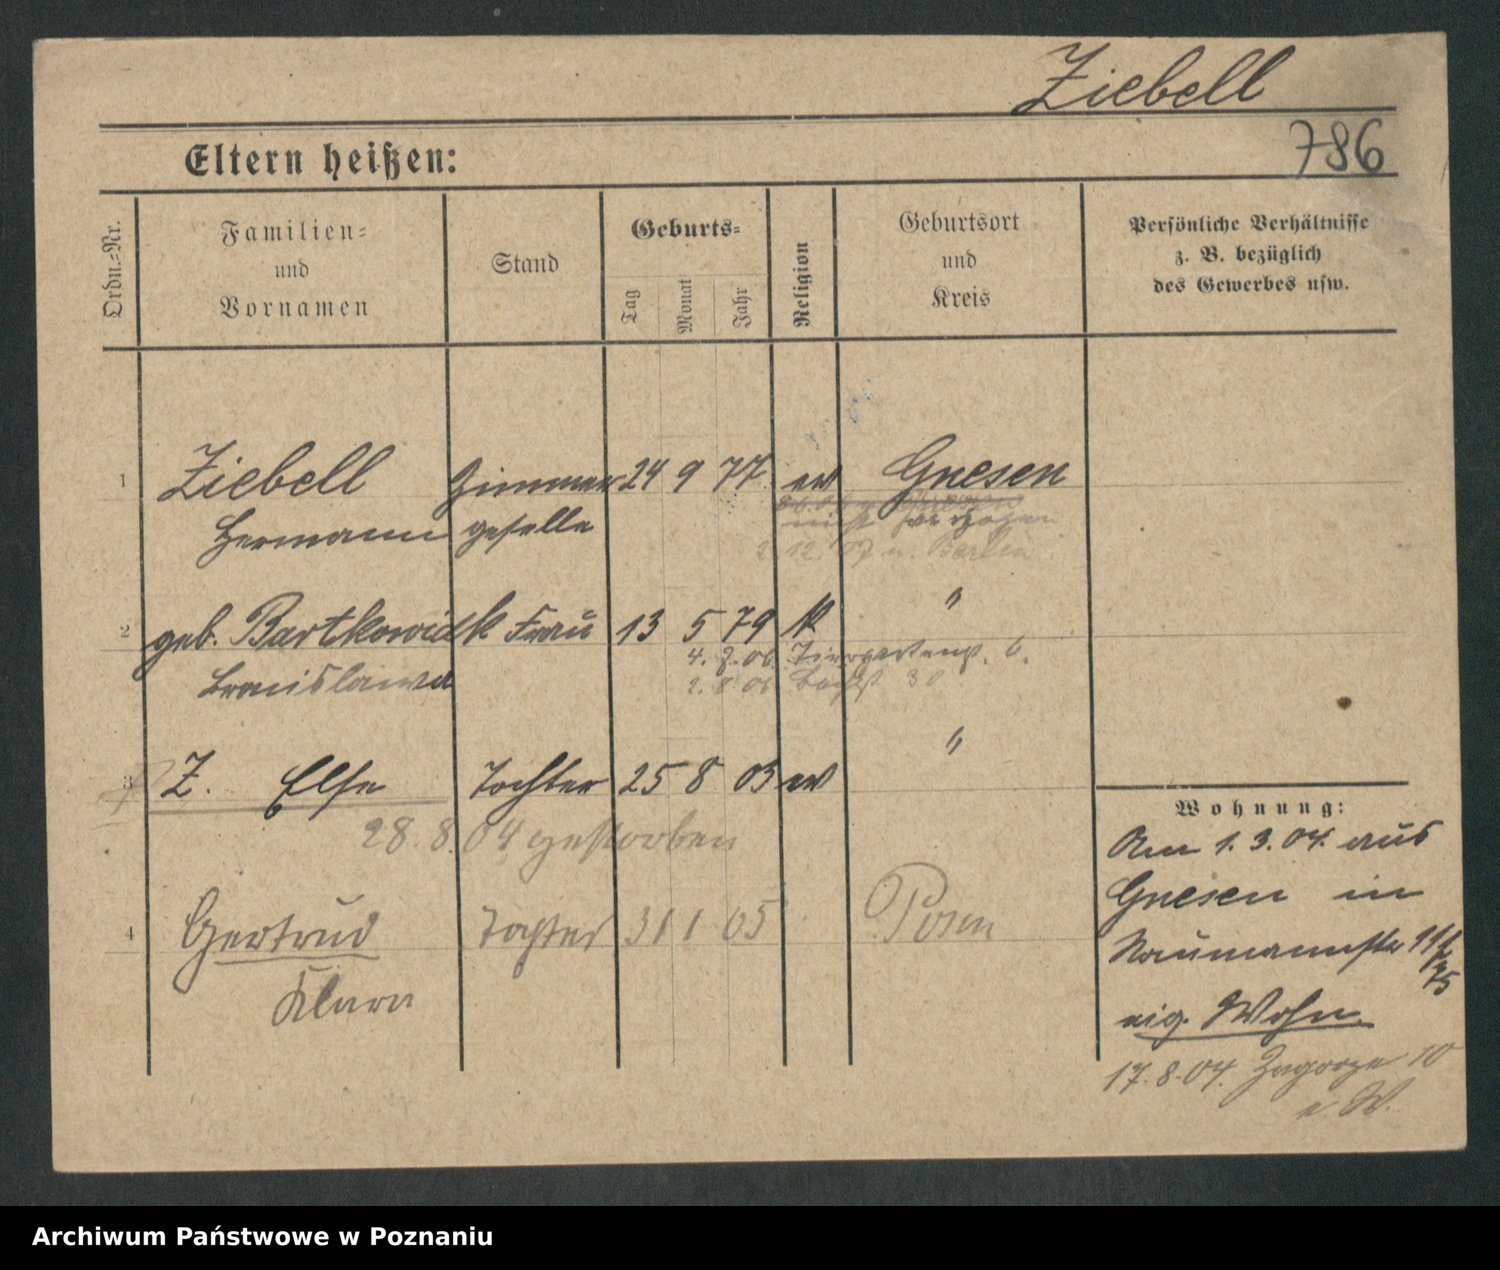 Ziebell
786
Eltern heißen:
Ordn.-Nr.
Familien-
und
Vornamen
Stand
Geburts-
Tag
Monat
Jahr
Religion
Geburtsort
und
Kreis
Persönliche Verhältnisse
z. B. bezüglich
des Gewerbes usw.
1 Ziebell Zimmer 24 9 77 ev Gnesen
Hermann geselle
nicht
2.12.07 n. Berlin
2 geb. Bartkowiak Frau 13 5 79 k "
4. 06 Tiergartenst. 6.
Bronislawa 2. 8 06 30
3 Z. Else Tochter 25 8 03 ev "
28.8.04 gestorben
4 Gertrud Tochter 31 1 05 Posen
Klara
Wohnung:
Am 1.3.04. aus
Gnesen in
Naumannstr
eig. Wohn.
17.8.04. Zagorze 10
e. W.
Archiwum Państwowe w Poznaniu